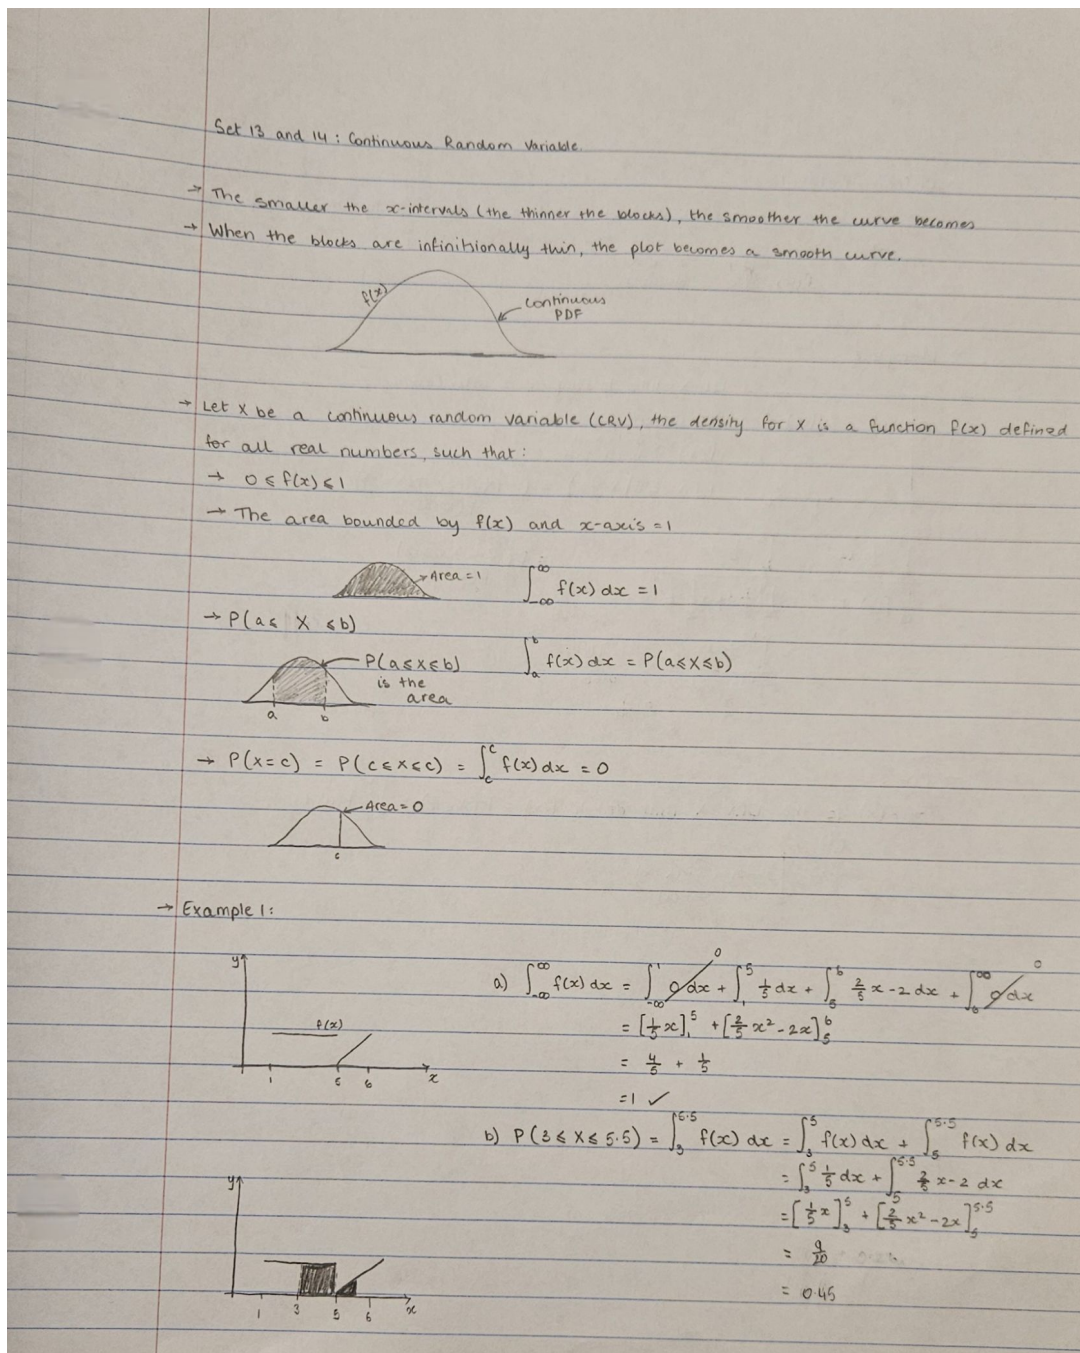 Set 13 and 14 : Continuous Random Variable.
→ The smaller the x-intervals (the thinner the blocks), the smoother the curve becomes
→ When the blocks are infinitionally thin, the plot becomes a smooth curve.
f(x)
continuous
PDF
→ Let X be a continuous random variable (CRV), the density for X is a function f(x) defined
for all real numbers, such that :
→ 0 ≤ f(x) ≤ 1
→ The area bounded by f(x) and x-axis = 1
Area = 1 ∫_{-∞}^{∞} f(x) dx = 1
→ P(a ≤ X ≤ b)
P(a ≤ X ≤ b) ∫_a^b f(x) dx = P(a ≤ X ≤ b)
is the
area
a b
→ P(X=c) = P(c ≤ X ≤ c) = ∫_c^c f(x) dx = 0
Area = 0
c
→ Example 1:
y
f(x)
1 5 6 x
a) ∫_{-∞}^{∞} f(x) dx = ∫_{-∞}^1 0 dx + ∫_1^5 1/5 dx + ∫_5^6 2/5 x - 2 dx + ∫_6^∞ 0 dx
0 0
= [1/5 x]_1^5 + [2/5 x² - 2x]_5^6
= 4/5 + 1/5
= 1 ✓
b) P(3 ≤ X ≤ 5.5) = ∫_3^{5.5} f(x) dx = ∫_3^5 f(x) dx + ∫_5^{5.5} f(x) dx
= ∫_3^5 1/5 dx + ∫_5^{5.5} 2/5 x - 2 dx
= [1/5 x]_3^5 + [2/5 x² - 2x]_5^{5.5}
= 9/20
= 0.45
y
1 3 5 6 x